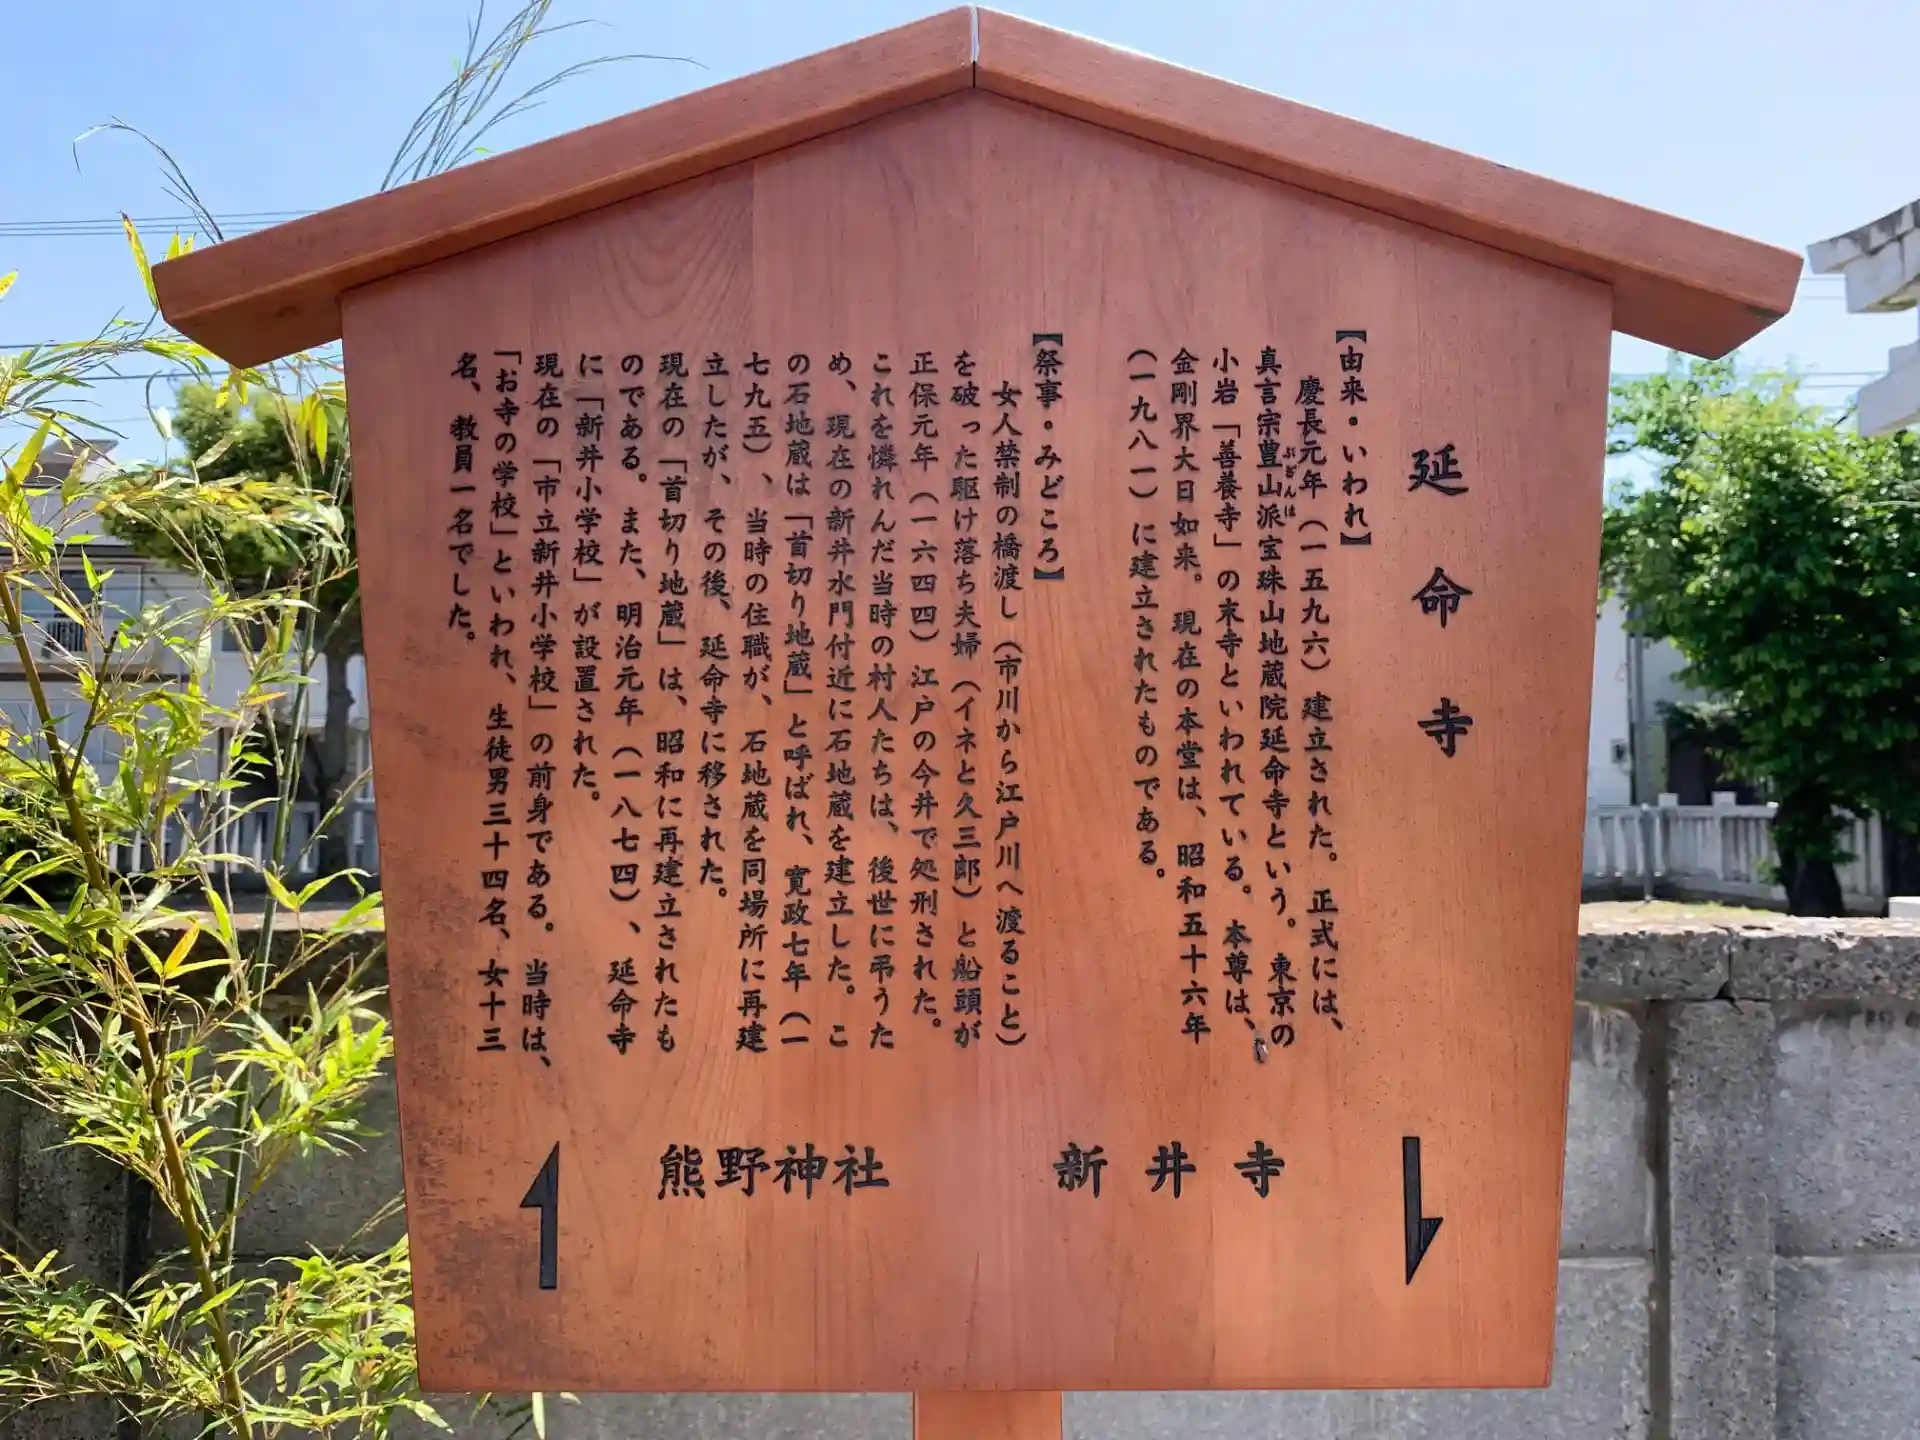 延命寺
【由来・いわれ】
慶長元年(一五九六)建立された。正式には、
真言宗豊山派宝珠山地蔵院延命寺という。東京の
ぶざんは
小岩「善養寺」の末寺といわれている。本尊は、
金剛界大日如来。現在の本堂は、昭和五十六年
(一九八一)に建立されたものである。
【祭事・みどころ】
女人禁制の橋渡し(市川から江戸川へ渡ること)
を破った駆け落ち夫婦(イネと久三郎)と船頭が
正保元年(一六四四)江戸の今井で処刑された。
これを憐れんだ当時の村人たちは、後世に弔うた
め、現在の新井水門付近に石地蔵を建立した。こ
の石地蔵は「首切り地蔵」と呼ばれ、寛政七年(一
七九五)、当時の住職が、石地蔵を同場所に再建
立したが、その後、延命寺に移された。
現在の「首切り地蔵」は、昭和に再建立されたも
のである。また、明治元年(一八七四)、延命寺
に「新井小学校」が設置された。
現在の「市立新井小学校」の前身である。当時は、
「お寺の学校」といわれ、生徒男三十四名、女十三
名、教員一名でした。
熊野神社
新井寺